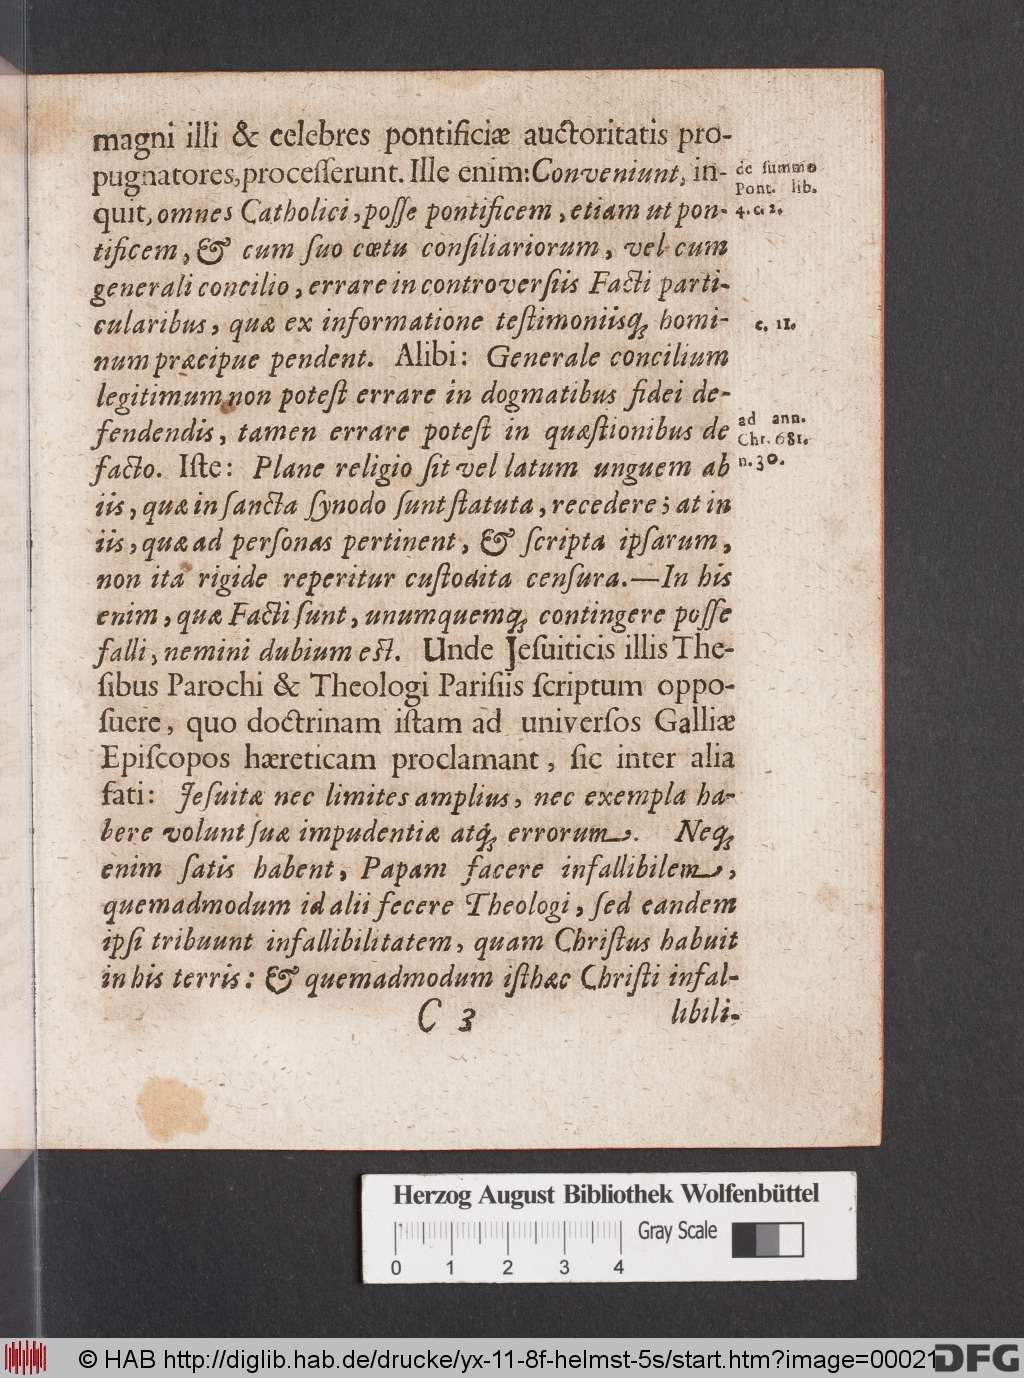 magni illi & celebres pontificiæ auctoritatis pro-
pugnatores, proceſſerunt. Ille enim: Conveniunt, in-
quit, omnes Catholici, poſſe pontificem, etiam ut pon-
tificem, & cum ſuo cœtu conſiliariorum, vel cum
generali concilio, errare in controverſiis Facti parti-
cularibus, quæ ex informatione teſtimoniisq; homi-
num præcipue pendent. Alibi: Generale concilium
legitimum non poteſt errare in dogmatibus fidei de-
fendendis, tamen errare poteſt in quæſtionibus de
facto. Iſte: Plane religio ſit vel latum unguem ab
iis, quæ in ſancta ſynodo ſunt ſtatuta, recedere; at in
iis, quæ ad perſonas pertinent, & ſcripta ipſarum,
non ita rigide reperitur cuſtodita cenſura.—In his
enim, quæ Facti ſunt, unumquemq; contingere poſſe
falli, nemini dubium eſt. Unde Jeſuiticis illis The-
ſibus Parochi & Theologi Pariſiis ſcriptum oppo-
ſuere, quo doctrinam iſtam ad univerſos Galliæ
Epiſcopos hæreticam proclamant, ſic inter alia
fati: Jeſuitæ nec limites amplius, nec exempla ha-
bere volunt ſuæ impudentiæ atq́; errorum. Neq;
enim ſatis habent, Papam facere infallibilem,
quemadmodum id alii fecere Theologi, ſed eandem
ipſi tribuunt infallibilitatem, quam Chriſtus habuit
in his terris: & quemadmodum iſthæc Chriſti infal-
C 3 libili-
de ſummo
Pont. lib.
4. c. 2.
c. 11.
ad ann.
Chr. 681.
n. 30.
Herzog August Bibliothek Wolfenbüttel
Gray Scale
0 1 2 3 4
© HAB http://diglib.hab.de/drucke/yx-11-8f-helmst-5s/start.htm?image=00021
DFG